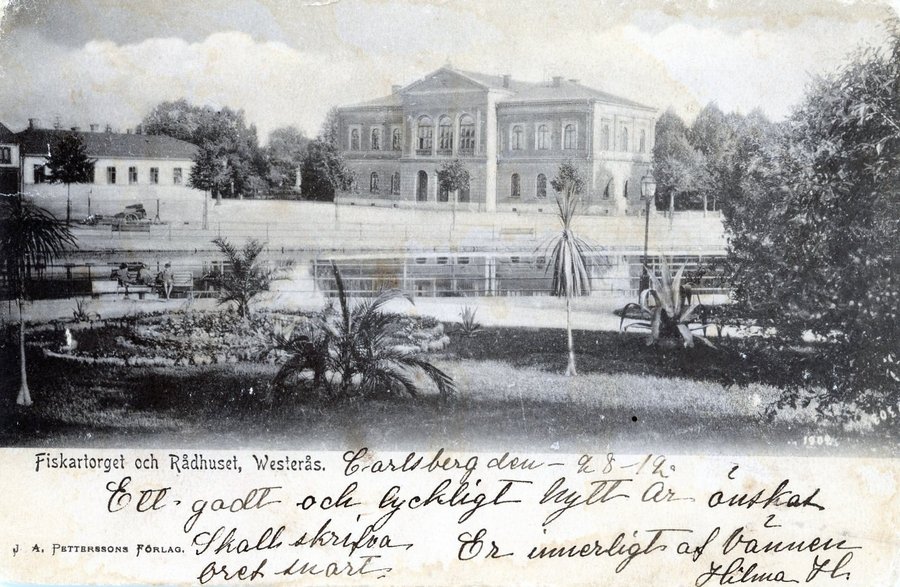 1902
Fiskartorget och Rådhuset, Westerås.
Carlsberg den
Ett godt och lyckligt Nytt År önskas
J. A. PETTERSSONS FÖRLAG.
Skall skrifva
snart.
Er innerligt af Vännen
Hilma H.